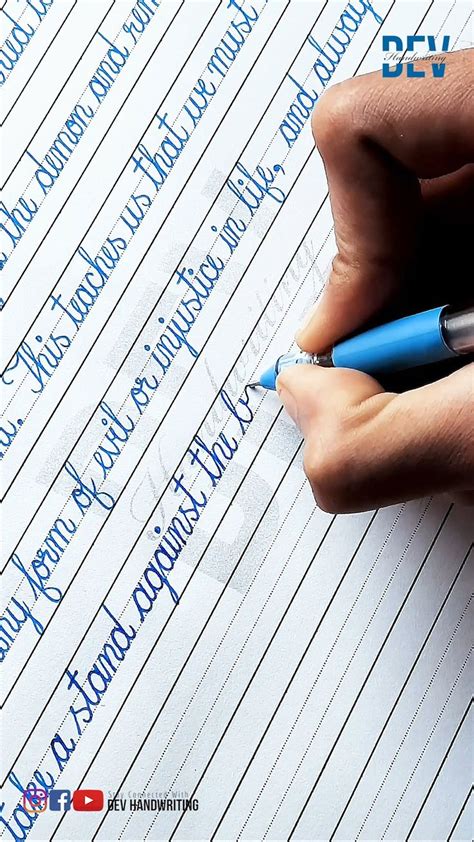 DEV
Handwriting
the demon and
. This teaches us that we must
any form of evil or injustice in life, and alway
take a stand against the b
Stay Connected With
DEV HANDWRITING